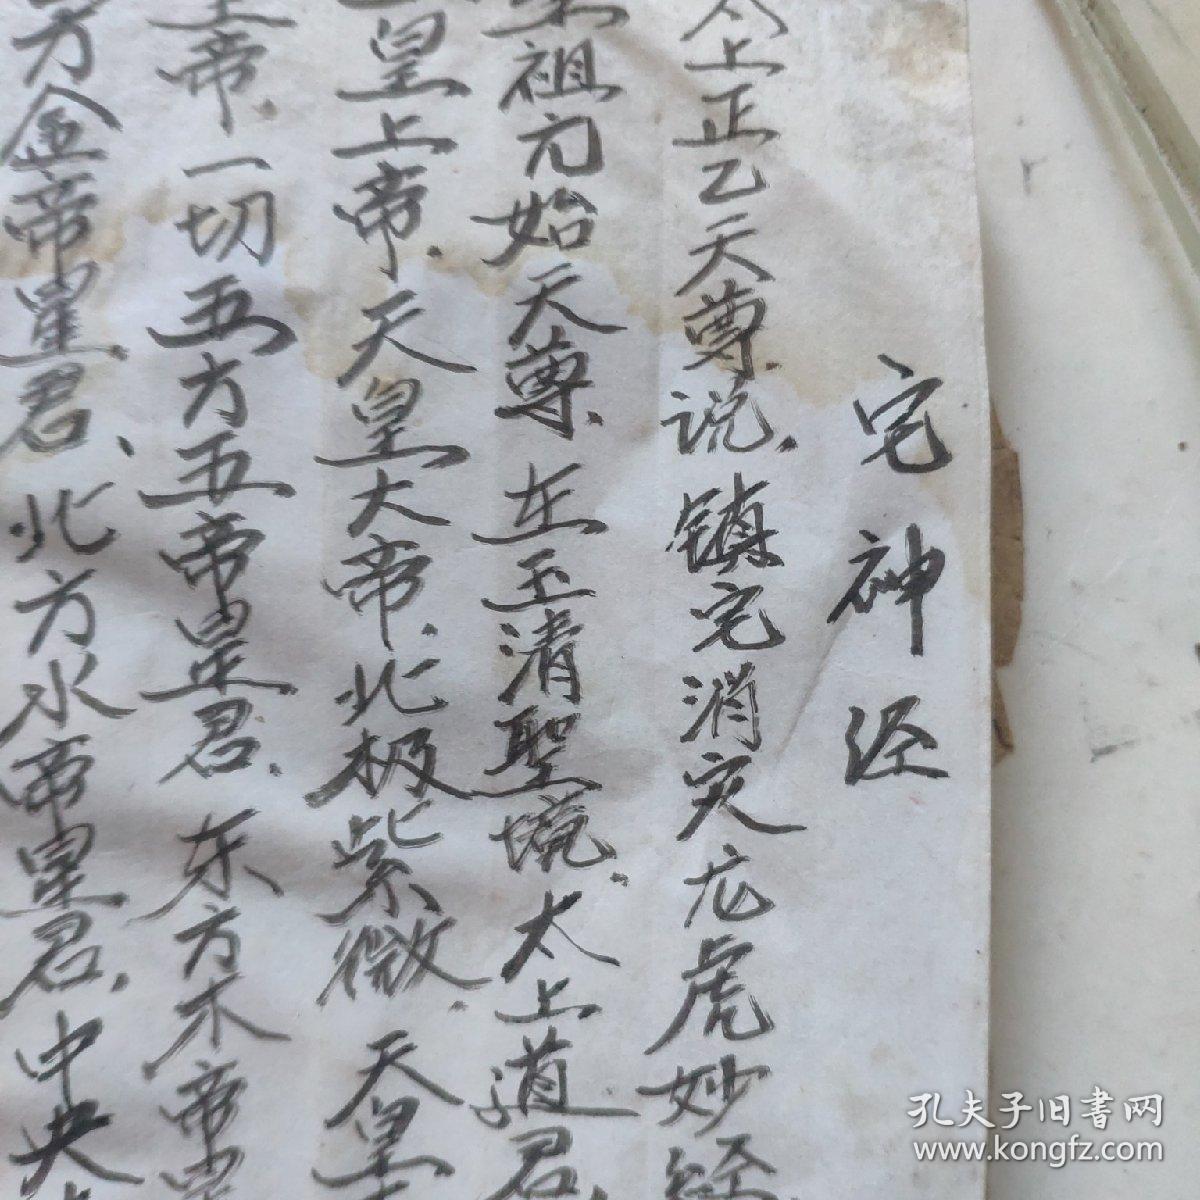 宅神经
太上正乙天尊说.镇宅消灾龙虎妙经
祖元始天尊.在玉清聖境.太上道君.
皇上帝.天皇大帝.北极紫微.天皇
上帝.一切五方五帝星君.东方木帝星
方金帝星君、北方水帝星君.中央
孔夫子旧書网
www.kongfz.com